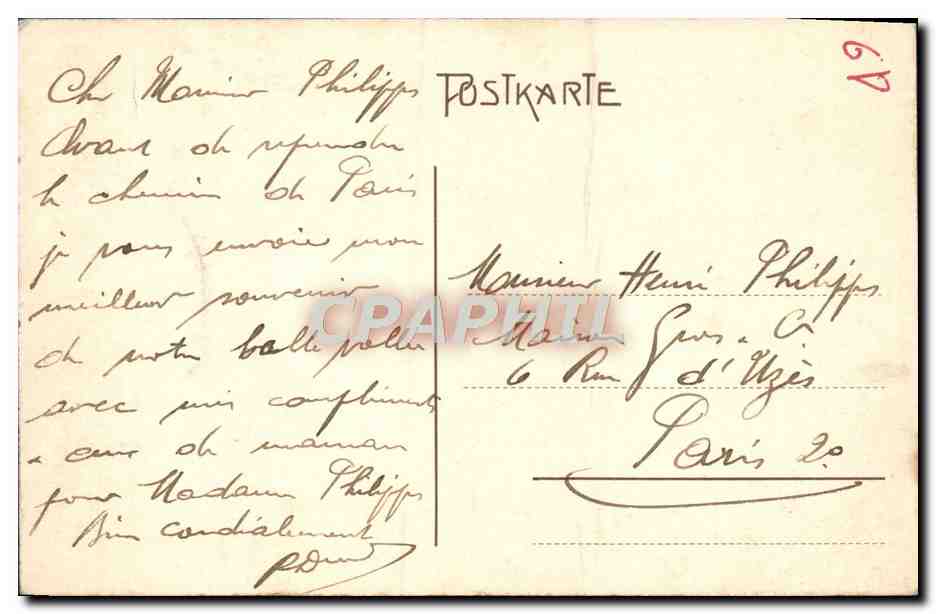 Cher Monsieur Philipps
Avant de reprendre
le chemin de Paris
je vous envoie mon
meilleur souvenir
de notre balle
avec mes compliments
et ceux de maman
pour Madame Philipps
Bien cordialement
POSTKARTE
Monsieur Henri Philipps
Maison Gros & Cie
6 Rue d'Uzès
Paris 2e
CPAPHIL